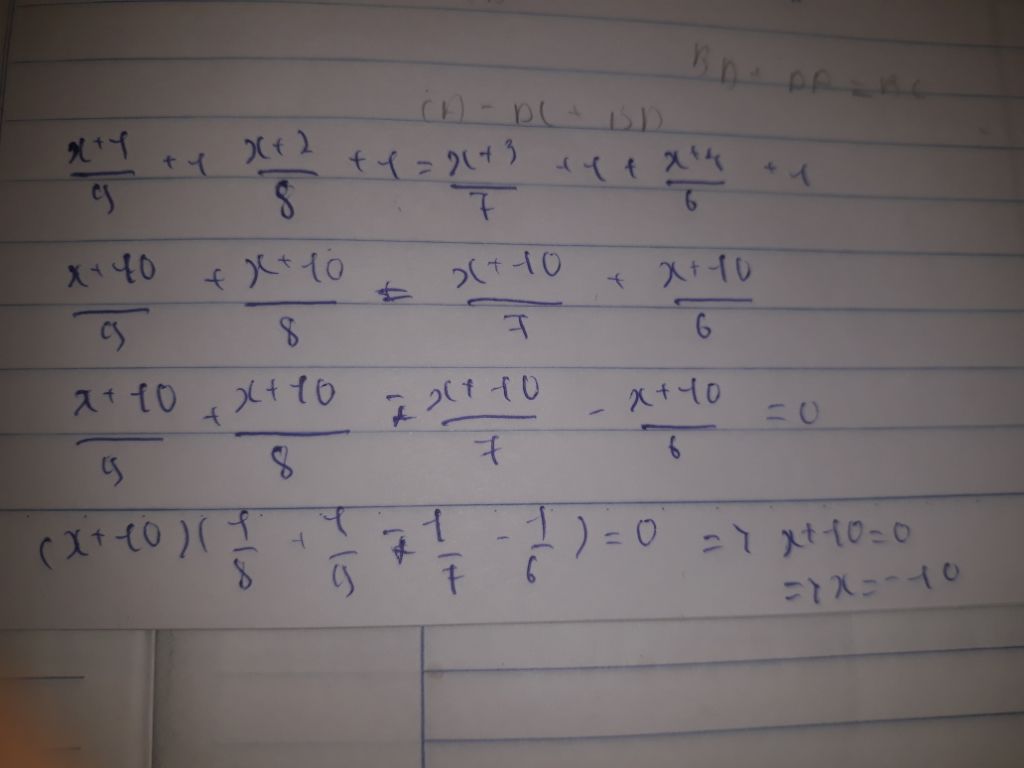 BD + DA = BC
CA - DC + BD
\frac{x+1}{9} + 1 \frac{x+2}{8} + 1 = \frac{x+3}{7} + 1 + \frac{x+4}{6} + 1
\frac{x+10}{9} + \frac{x+10}{8} = \frac{x+10}{7} + \frac{x+10}{6}
\frac{x+10}{9} + \frac{x+10}{8} - \frac{x+10}{7} - \frac{x+10}{6} = 0
(x+10)(\frac{1}{8} + \frac{1}{9} - \frac{1}{7} - \frac{1}{6}) = 0 => x+10=0
=> x = -10